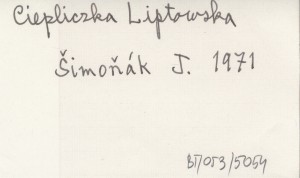 Ciepliczka Liptowska
Šimoňák J. 1971
B7/053/5054